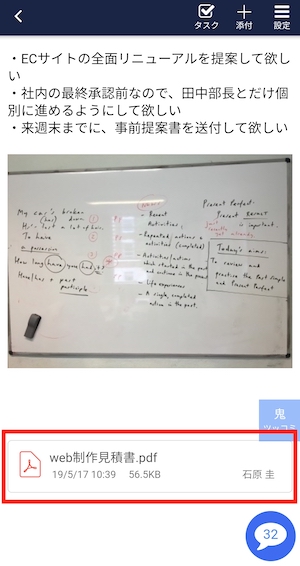 タスク 添付 設定
・ECサイトの全面リニューアルを提案して欲し
い
・社内の最終承認前なので、田中部長とだけ個
別に進めるようにして欲しい
・来週末までに、事前提案書を送付して欲しい
My car's broken
(has) down.
He's lost a lot of hair.
To have
a possession
How long have you had it?
Have/has + past
participle
- Recent
Activities.
- Repeated actions +
activities (completed)
- Activities/actions
which started in the past
and continue in the present
- Life experiences
- A single, completed
action in the past.
Present Perfect:
Present RESULT
is important.
Today's aims:
To review and
practice the Past simple
and Present Perfect
鬼
ツッコミ
web制作見積書.pdf
19/5/17 10:39 56.5KB 石原 圭
32